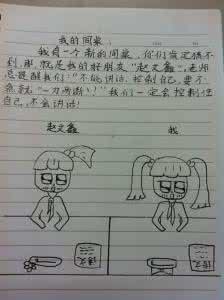 我的同桌:
我有一个新的同桌,你们肯定猜不
到,那就是我的好朋友"赵文鑫",老师
总提醒我们:"不能讲话,控制自己,要不
然就"一刀两断"!"我们一定会控制住
自己,不会讲话!
赵文鑫
我
语文
语文